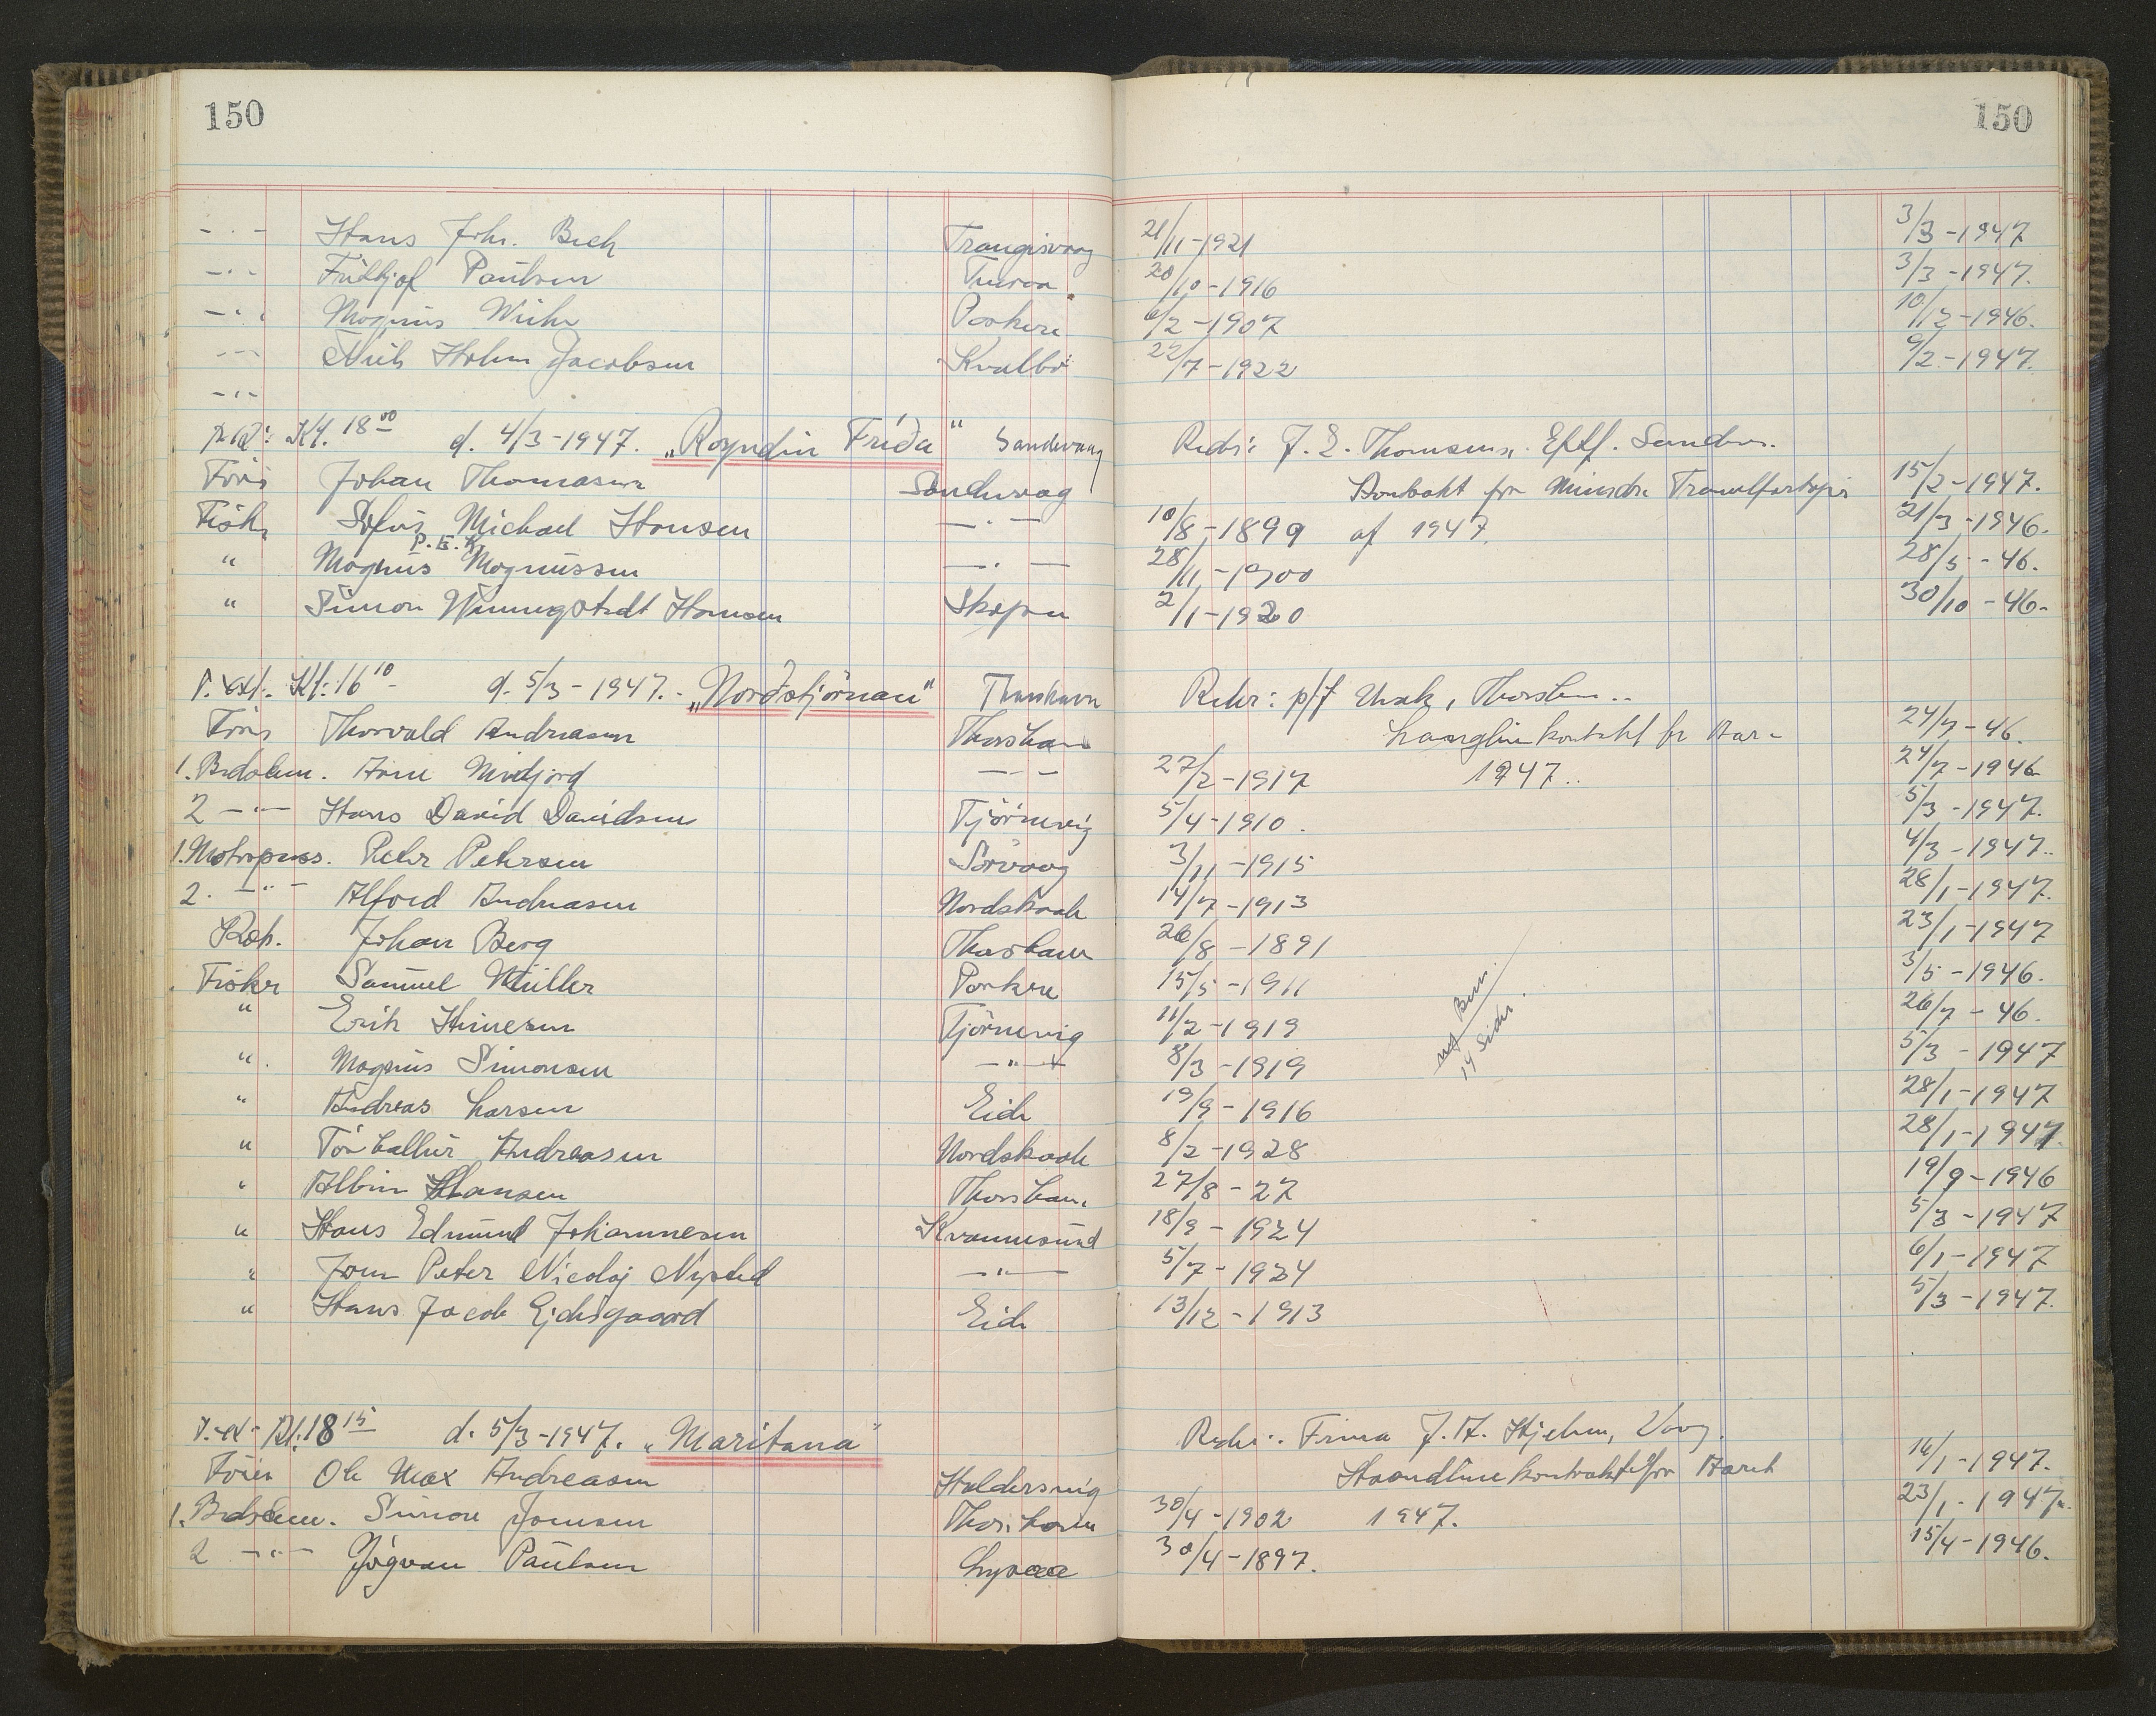 150 150
- . - Hans Joh. Bech Trangisvaag 21/11-1921 3/3-1947
- . - Frithjof Paulsen Tveraa 20/10-1916 3/3-1947.
- . - Magnus Wiihe Porkere 6/2-1907 10/12-1946.
- . - Niels Holm Jacobsen Kvalbö 22/7-1922 9/2-1947.
- . -
Kl. 18 00 d. 4/3-1947. „Royndin Fríða" Sandevaag Reds: J. E. Thomsens Eftf. Sandv.
Förer Johan Thomasen Sandevaag Kontrakt for mindre Trawlfartøjer 15/2-1947.
Fiskr Sofus Michael Hansen - . - 10/8-1899 af 1947. 21/3-1946.
P. E. K.
" Magnus Magnussen - . - 28/11-1900 28/5-46.
" Simon Winnigstedt Hansen Skopun 2/1-1920 30/10-46-
P. ext. Kl: 16 10 - d. 5/3-1947. - „Norðstjörnan" Thorshavn Reder: p/f Thorshavn..
Förer Thorvald Andreasen Thorshavn Langlinekontrakt for Aar- 24/7-46.
1. Bedstem. Arne Nividjord - - - 27/2-1917 1947.. 24/7-1946
2 - " - Hans David Davidsen Tjörnevig 5/4-1910. 5/3-1947.
1. Motorpass. Peter Petersen Sörvaag 3/11-1915 4/3-1947..
2. - " - Alfred Andreasen Nordskaale 14/7-1913 28/1-1947.
Kok. Johan Berg Thorshavn 26/8-1891 23/1-1947
Fisker Samuel Müller Porkere 15/5-1911 3/5-1946.
" Erik Hinesen Tjörnevig 11/2-1919 26/7-46.
". Magnus Simonsen - " - 8/3-1919 5/3-1947
" Andreas Larsen Eide 19/9-1916 28/1-1947
" Tórhallur Andreasen Nordskaale 8/2-1928 28/1-1947.
" Albin Hansen Thorshavn. 27/8-27 19/9-1946
" Hans Edmund Johannesen Kvannesund 18/9-1924 5/3-1947
" Joen Peter Nicolaj Nysted - " - 5/7-1924 6/1-1947
" Hans Jacob Ejdisgaard Eide 13/12-1913 5/3-1947.
Kl. 18 15 d. 5/3-1947. „Maritana" Reder: Firma J. A. Hjelm, Vaag.
Förer Ole Max Andreasen Haldersvig Haandlinekontrakt for Aaret 16/1-1947.
1. Bedstem. Simon Joensen Thorshavn 30/4-1902 1947. 23/1-1947.
2 - " - Jógvan Paulsen 30/4-1897. 15/4-1946.